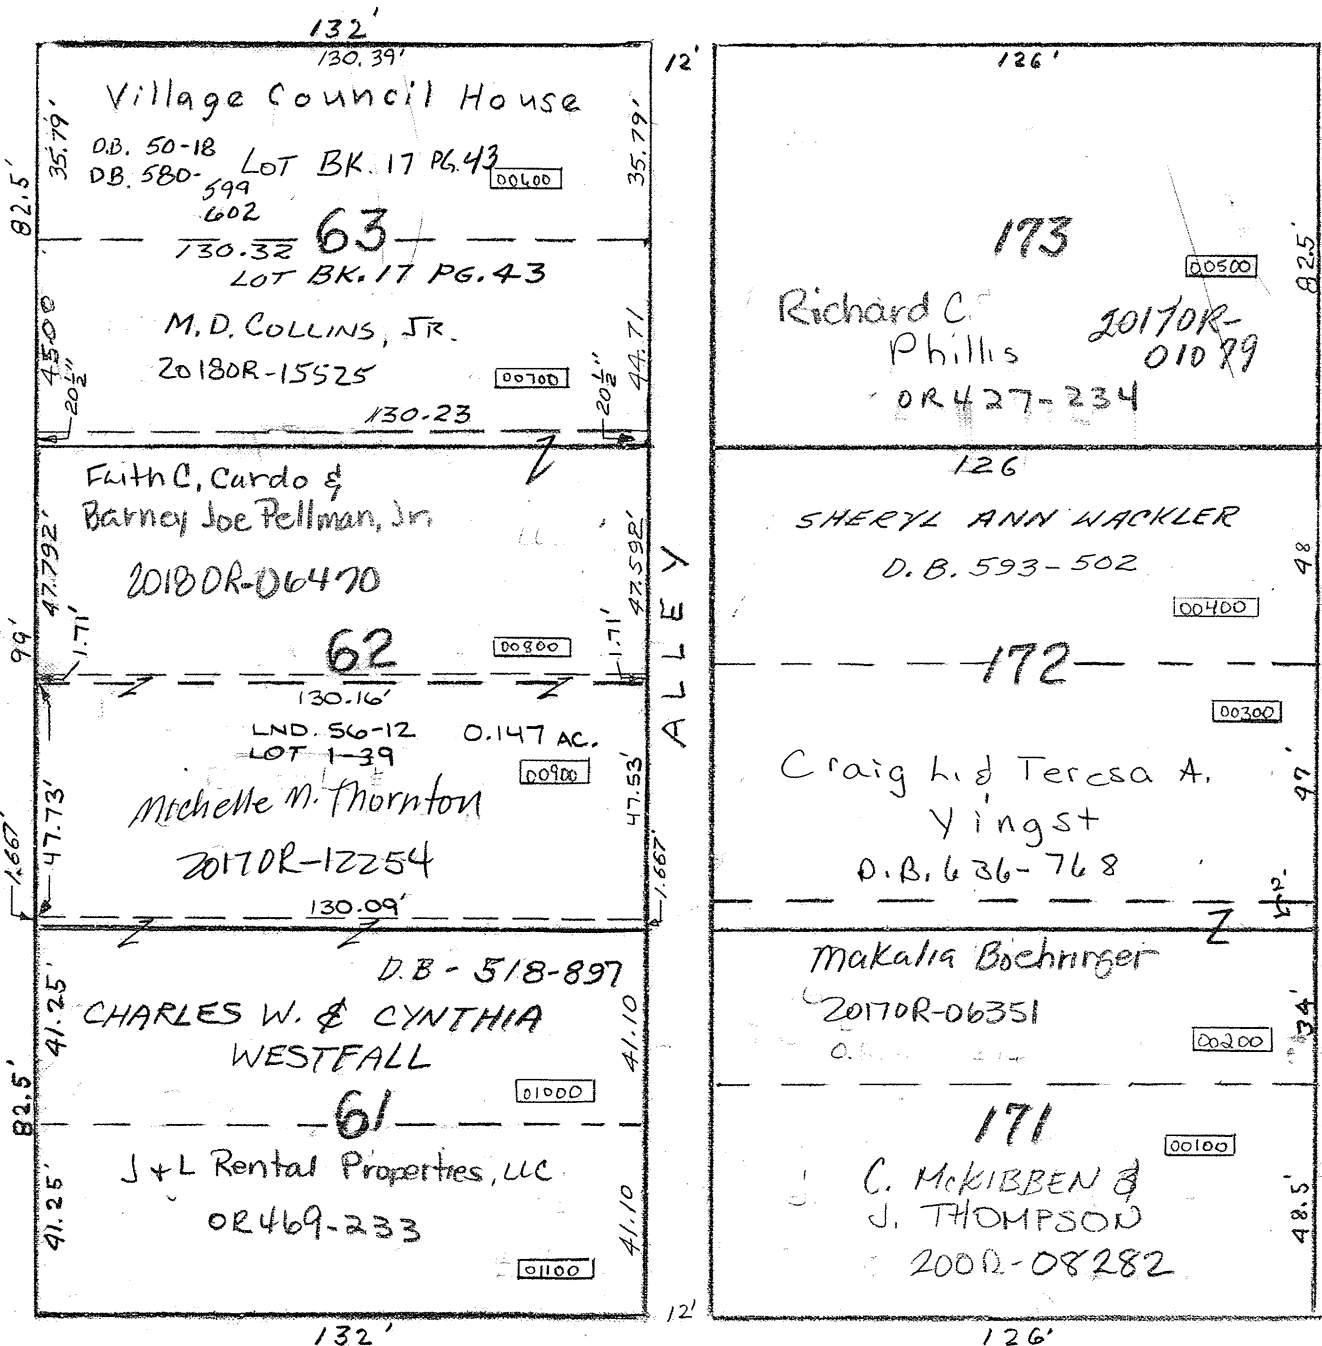 132'
130.39'
Village Council House
D.B. 50-18
DB. 580-
599
602
LOT BK. 17 PG. 43
00600
35.79'
35.79'
82.5'
63
130.32
LOT BK. 17 PG. 43
M. D. COLLINS, JR.
20180R-15525
00700
45.00
44.71
20½"
20½"
130.23
Faith C, Cardo &
Barney Joe Pellman, Jr.
20180R-06470
47.792'
47.592'
99'
1.71'
1.71'
62
00800
130.16'
LND. 56-12
0.147 AC.
LOT 1-39
00900
Michelle M. Thornton
20170R-12254
47.73'
47.53'
1.667'
1.667'
130.09'
D.B - 518-897
CHARLES W. & CYNTHIA
WESTFALL
41.25'
41.10
01000
82.5'
61
J + L Rental Properties, LLC
OR469-233
41.25'
41.10
01100
132'
12'
ALLEY
12'
126'
173
00500
82.5'
Richard C.
Phillis
20170R-
OR 427-234
126
SHERYL ANN WACKLER
D. B. 593-502
48
00400
172
00300
Craig L. & Teresa A.
Yingst
D.B. 636-768
47'
Makalia Boehringer
20170R-06351
34'
00200
171
00100
C. McKIBBEN &
J. THOMPSON
48.5'
126'